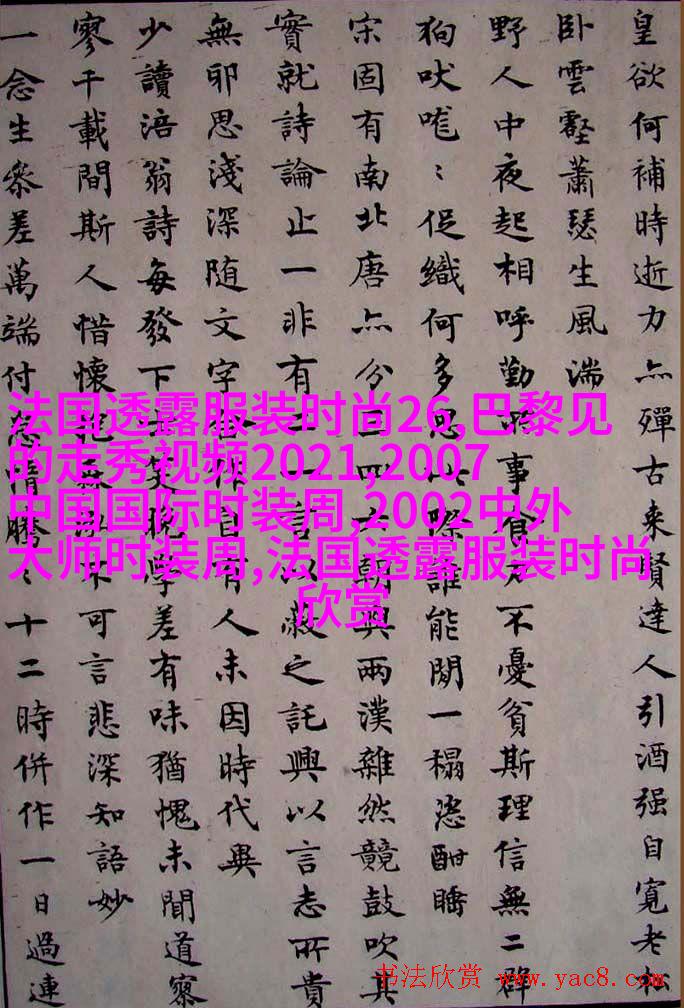 皇欲何補時逝力亦殫古來賢達人引酒强自寬老
卧雲壑蕭瑟生風湍
野人中夜起相呼勤事食不憂貧斯理信無二群
狗吠嘊〻促織何多思此際誰能閒一榻恣酣睡
宋固有南北唐亦分三四六朝與兩漢雜然競鼓吹其
實就詩論止一非有二一言以蔽之託興以言志所貴
無邪思淺深随文字各作自有人未因時代異
少讀涪翁詩每發下士笑晚學差有味猶愧未聞道寥
寥千載間斯人惜懷抱無不可言悲深知語妙
一念生參差萬端付怠惰騰〻十二時併作一日過連
法国透露服装时尚26,巴黎见
的走秀视频2021,2007
中国国际时装周,2002中外
大师时装周,法国透露服装时尚
欣赏
书法欣赏 www.yac8.com